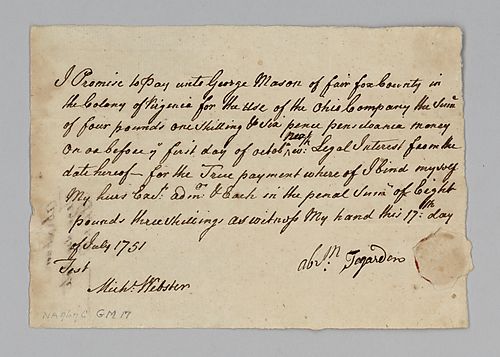 I Promise to Pay unto George Mason of fair fox County in
the Colony of Virgenia for the Use of the Ohio Company the Sum^m
of four pounds one Shilling & Six pence pensilvania money
On or before ye first day of octobr next, wth Legal Interest from the
date hereof – for the True payment where of I bind myself
My heirs Exrs. admrs & Each in the penal Sum^m of Eight
pounds three Shillings as witness My hand this 17th day
of July 1751
Test
abrm Tegarden
Michl. Webster
NA967C GM 17